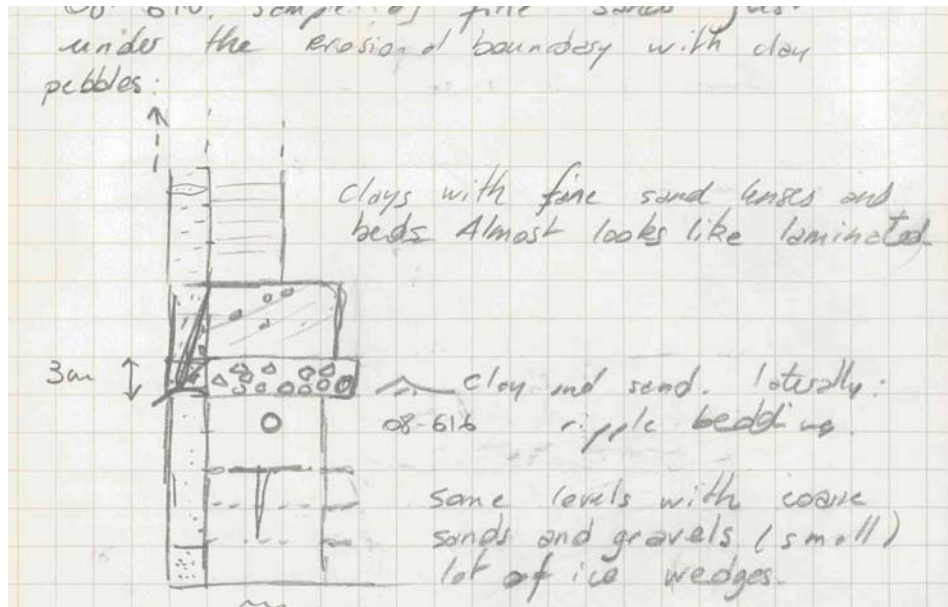 08-616. sample of fine sands just
under the erosional boundary with clay
pebbles:
clays with fine sand lenses and
beds. Almost looks like laminated
3cm
clay and sand. laterally:
08-616 ripple bedding.
some levels with coarse
sands and gravels (small)
lot of ice wedges.